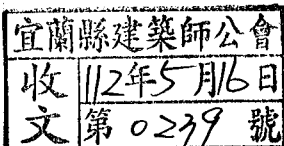 宜蘭縣建築師公會
收文
112年5月16日
第0239號